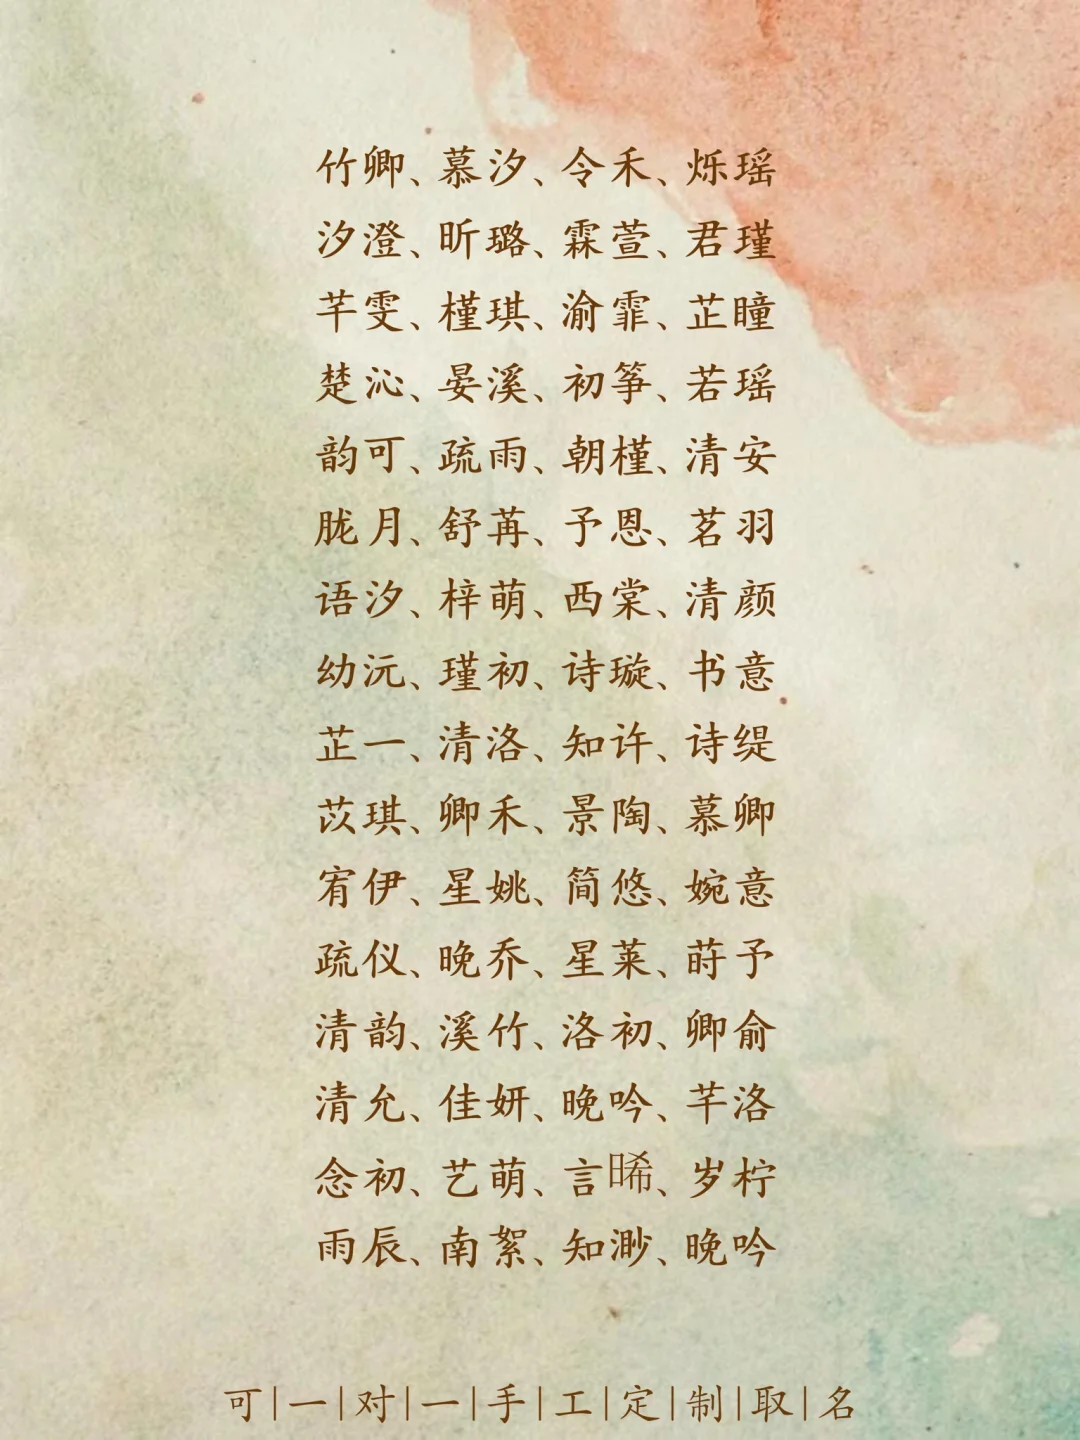 竹卿、慕汐、令禾、烁瑶
汐澄、昕璐、霖萱、君瑾
芊雯、槿琪、渝霏、芷瞳
楚沁、晏溪、初筝、若瑶
韵可、疏雨、朝槿、清安
胧月、舒苒、予恩、茗羽
语汐、梓萌、西棠、清颜
幼沅、瑾初、诗璇、书意
芷一、清洛、知许、诗缇
苡琪、卿禾、景陶、慕卿
宥伊、星姚、简悠、婉意
疏仪、晚乔、星莱、莳予
清韵、溪竹、洛初、卿俞
清允、佳妍、晚吟、芊洛
念初、艺萌、言晞、岁柠
雨辰、南絮、知渺、晚吟
可|一|对|一|手|工|定|制|取|名